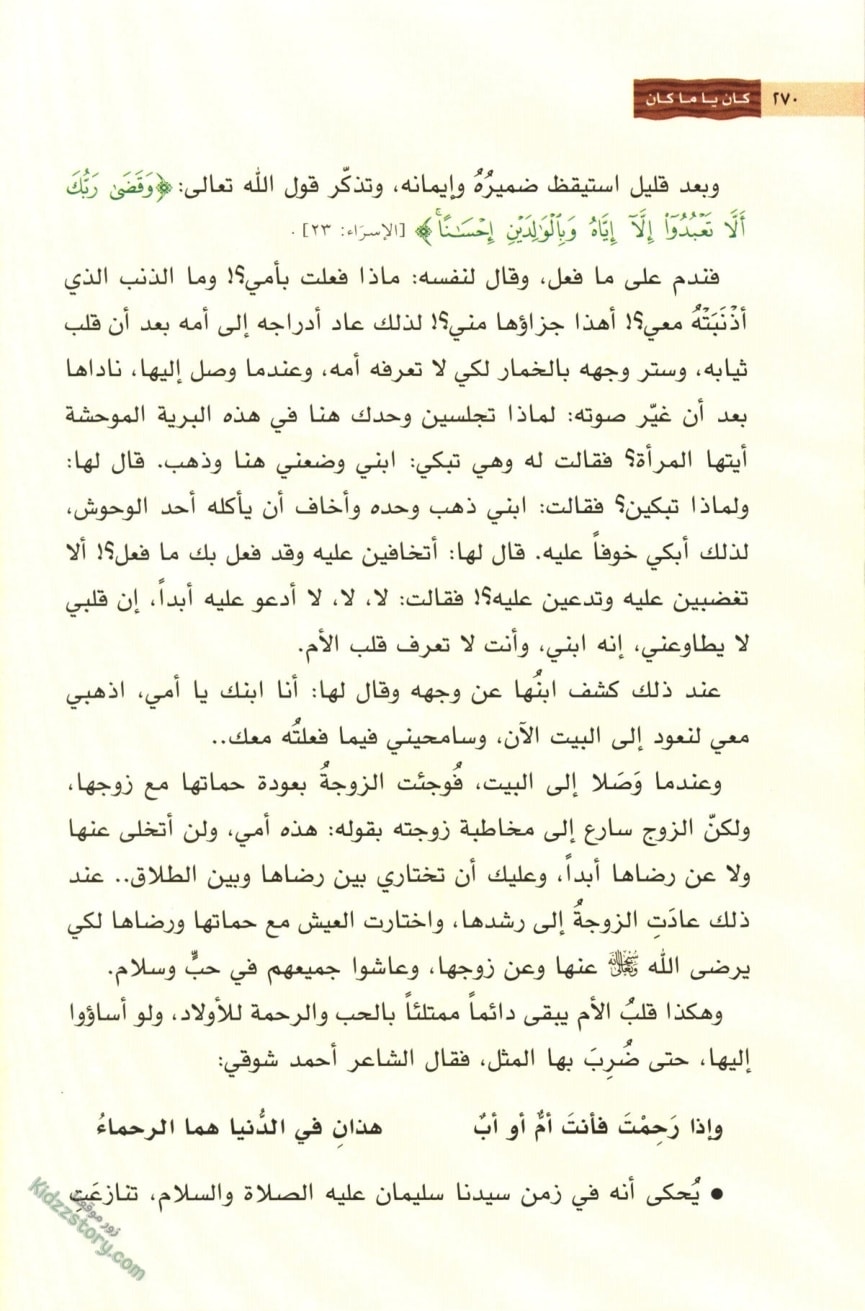 ٢٧٠ كان يا ما كان
وبعد قليل استيقظ ضميرُهُ وإيمانه، وتذكّر قول الله تعالى: ﴿وَقَضَىٰ رَبُّكَ
أَلَّا تَعْبُدُوٓا۟ إِلَّآ إِيَّاهُ وَبِٱلْوَٰلِدَيْنِ إِحْسَٰنًاۚ﴾ [الإسرَاء: ٢٣].
فندم على ما فعل، وقال لنفسه: ماذا فعلت بأمي؟! وما الذنب الذي
أذْنَبَتْهُ معي؟! أهذا جزاؤها مني؟! لذلك عاد أدراجه إلى أمه بعد أن قلب
ثيابه، وستر وجهه بالخمار لكي لا تعرفه أمه، وعندما وصل إليها، ناداها
بعد أن غيّر صوته: لماذا تجلسين وحدك هنا في هذه البرية الموحشة
أيتها المرأة؟ فقالت له وهي تبكي: ابني وضعني هنا وذهب. قال لها:
ولماذا تبكين؟ فقالت: ابني ذهب وحده وأخاف أن يأكله أحد الوحوش،
لذلك أبكي خوفاً عليه. قال لها: أتخافين عليه وقد فعل بك ما فعل؟! ألا
تغضبين عليه وتدعين عليه؟! فقالت: لا، لا، لا أدعو عليه أبداً، إن قلبي
لا يطاوعني، إنه ابني، وأنت لا تعرف قلب الأم.
عند ذلك كشف ابنُها عن وجهه وقال لها: أنا ابنك يا أمي، اذهبي
معي لنعود إلى البيت الآن، وسامحيني فيما فعلتُه معك..
وعندما وَصَلا إلى البيت، فُوجئت الزوجةُ بعودة حماتها مع زوجها،
ولكنّ الزوج سارع إلى مخاطبة زوجته بقوله: هذه أمي، ولن أتخلى عنها
ولا عن رضاها أبداً، وعليك أن تختاري بين رضاها وبين الطلاق.. عند
ذلك عادَتِ الزوجةُ إلى رشدها، واختارت العيش مع حماتها ورضاها لكي
يرضى الله سبحانه وتعالى عنها وعن زوجها، وعاشوا جميعهم في حبٍّ وسلام.
وهكذا قلبُ الأم يبقى دائماً ممتلئاً بالحب والرحمة للأولاد، ولو أساؤوا
إليها، حتى ضُرِبَ بها المثل، فقال الشاعر أحمد شوقي:
وإذا رَحِمْتَ فأنتَ أمٌ أو أبٌ هذانِ في الدُّنيا هما الرحماءُ
• يُحكى أنه في زمن سيدنا سليمان عليه الصلاة والسلام، تنازعَتِ
زور موقع
Kidzzstory.com